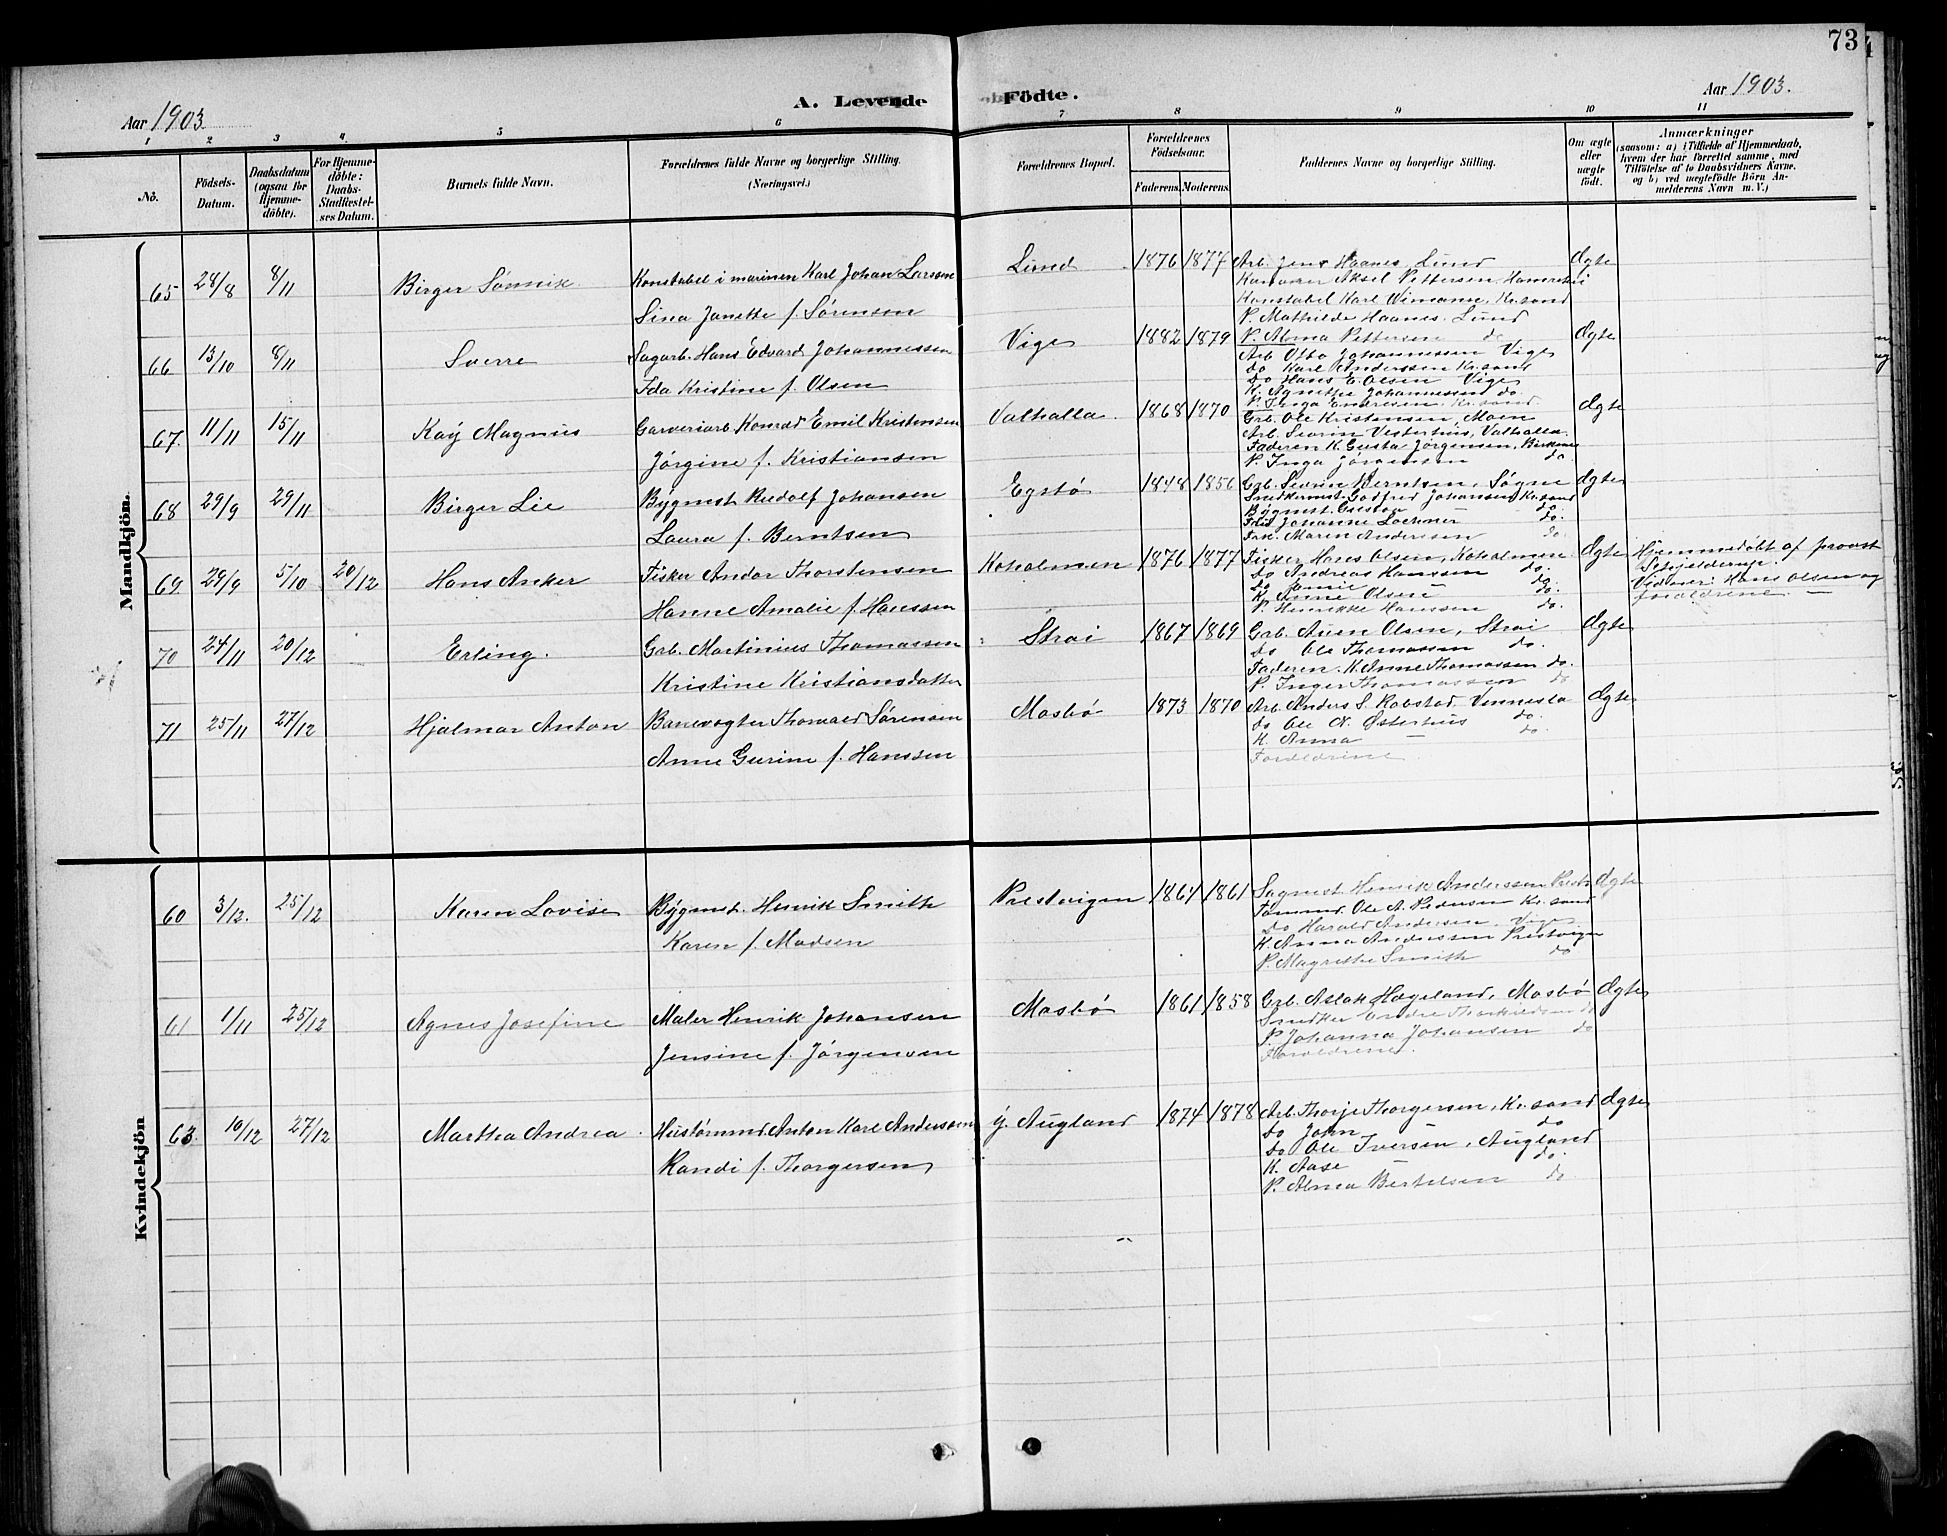 73
Aar 1903
A. Levende Födte.
Aar 1903.
1 2 3 4 5 6 7 8 9 10 11
No.
Födsels-Datum.
Daabsdatum (ogsaa for Hjemmedöbte).
For Hjemmedöbte: Daabs-Stadfæstelses Datum.
Barnets fulde Navn.
Forældrenes fulde Navne og borgerlige Stilling.
(Næringsvei.)
Forældrenes Bopæl.
Forældrenes Födselsaar.
Faderens. Moderens.
Faddernes Navne og borgerlige Stilling.
Om ægte eller uægte födt.
Anmærkninger
(saasom: a) i Tilfælde af Hjemmedaab, hvem der har forrettet samme, med Tilföielse af to Daabsvidners Navne, og b) ved uægtefödte Börn Anmelderens Navn m. V.)
Mandkjön.
65 28/8 8/11 Birger Sønnik Konstabel i marinen Karl Johan Larsen
Sina Janette f. Sørensen
Lund 1876 1877 Arb. Jens Haanes Lund Ægte
Aksel Pettersen
Konstabel Karl Wimann, Kr.sand
P. Mathilde Haanes. Lund
P. Alma Pettersen do
66 13/10 8/11 Sverre Sagarb. Hans Edvard Johannessen
Ida Kristine f. Olsen
Vige 1882 1879 Ægte
Arb Otto Johannessen Vige
do Karl Anderssen Kr.sand
Do Hans E. Olsen Vige
K. Agnethe Johannessen do
P. Inga Kr.sand
67. 11/11 15/11 Kay Magnus Garveriarb. Konrad Emil Kristensen
Jørgine f. Kristiansen
Valhalla. 1868 1870 Ægte
Grb. Ole Kristensen, Moen
Arb. Severin Vesterhus, Valhalla
Faderen K. Gusta Jørgensen,
P. Inga Jørgensen do
68 29/9 29/11 Birger Lie Bygmest. Rudolf Johansen
Laura f. Berntsen
Egsbø 1848 1856 Grb. Severin Berntsen, Søgne Ægte
Snedkermst. Godfred Johansen Kr.sand
Bygmst. Gustav do.
Johanne Lochner do.
Frk. Maren Andersen do
69 29/9 5/10 20/12 Hans Anker Fisker Andor Thorstensen
Hanne Amalie f. Hanssen
Kokolmen 1876 1877 Fisker Hans Olsen, Kokolmen Ægte
Do Andreas Hanssen do.
Do do.
K. Anne Olsen do.
P. Henrikke Hanssen do.
Hjemmedøbt af provst
Schjelderup.
Vidner: Hans Olsen og
forældrene. —
70 24/11 20/12 Erling. Grb. Martinius Thomassen
Kristine Kristiansdatter
Strai 1867 1869 Grb. Auen Olsen, Strai Ægte
Do Ole Thomassen do.
Faderen. K. Anne Thomassen do.
P. Inger Thomassen do
71 25/11 27/12 Hjalmar Anton Banevogter Thorvald Sørensen
Anne Gurine f. Hanssen
Mosbø 1873 1870 Arb. Anders S. Robstad, Vennesla Ægte
do Ole N. Østerhus do.
K. Anna — do.
Forældrene.
Kvindekjön
60 3/12. 25/12 Karen Lovise Bygmst. Henrik Smith
Karen f. Madsen
Prestvigen 1864 1861 Sagmest Henrik Anderssen Ægte
Tømmd. Ole A. Pedersen Kr.sand
Do Harald Andersen. Vige
K. Anna Anderssen Prestvigen
P. Magrethe Smith do
61 1/11 25/12 Agnes Josefine Maler Henrik Johansen
Jensine f. Jørgensen
Mosbø 1861 1858 Grb. Aslak Hægeland, Mosbø Ægte
Snedker do
P. Johanna Johansen do
Forældrene.
63. 10/12 27/12 Marthea Andrea Hustømmd. Anton Karl Andersen
Randi f. Thorgersen
y. Augland 1874 1878 Arb. Thorje Thorgersen, Kr.sand Ægte
Do John do
Do Ole Iversen, Augland
K. Aase do.
P. Alma Bertelsen do